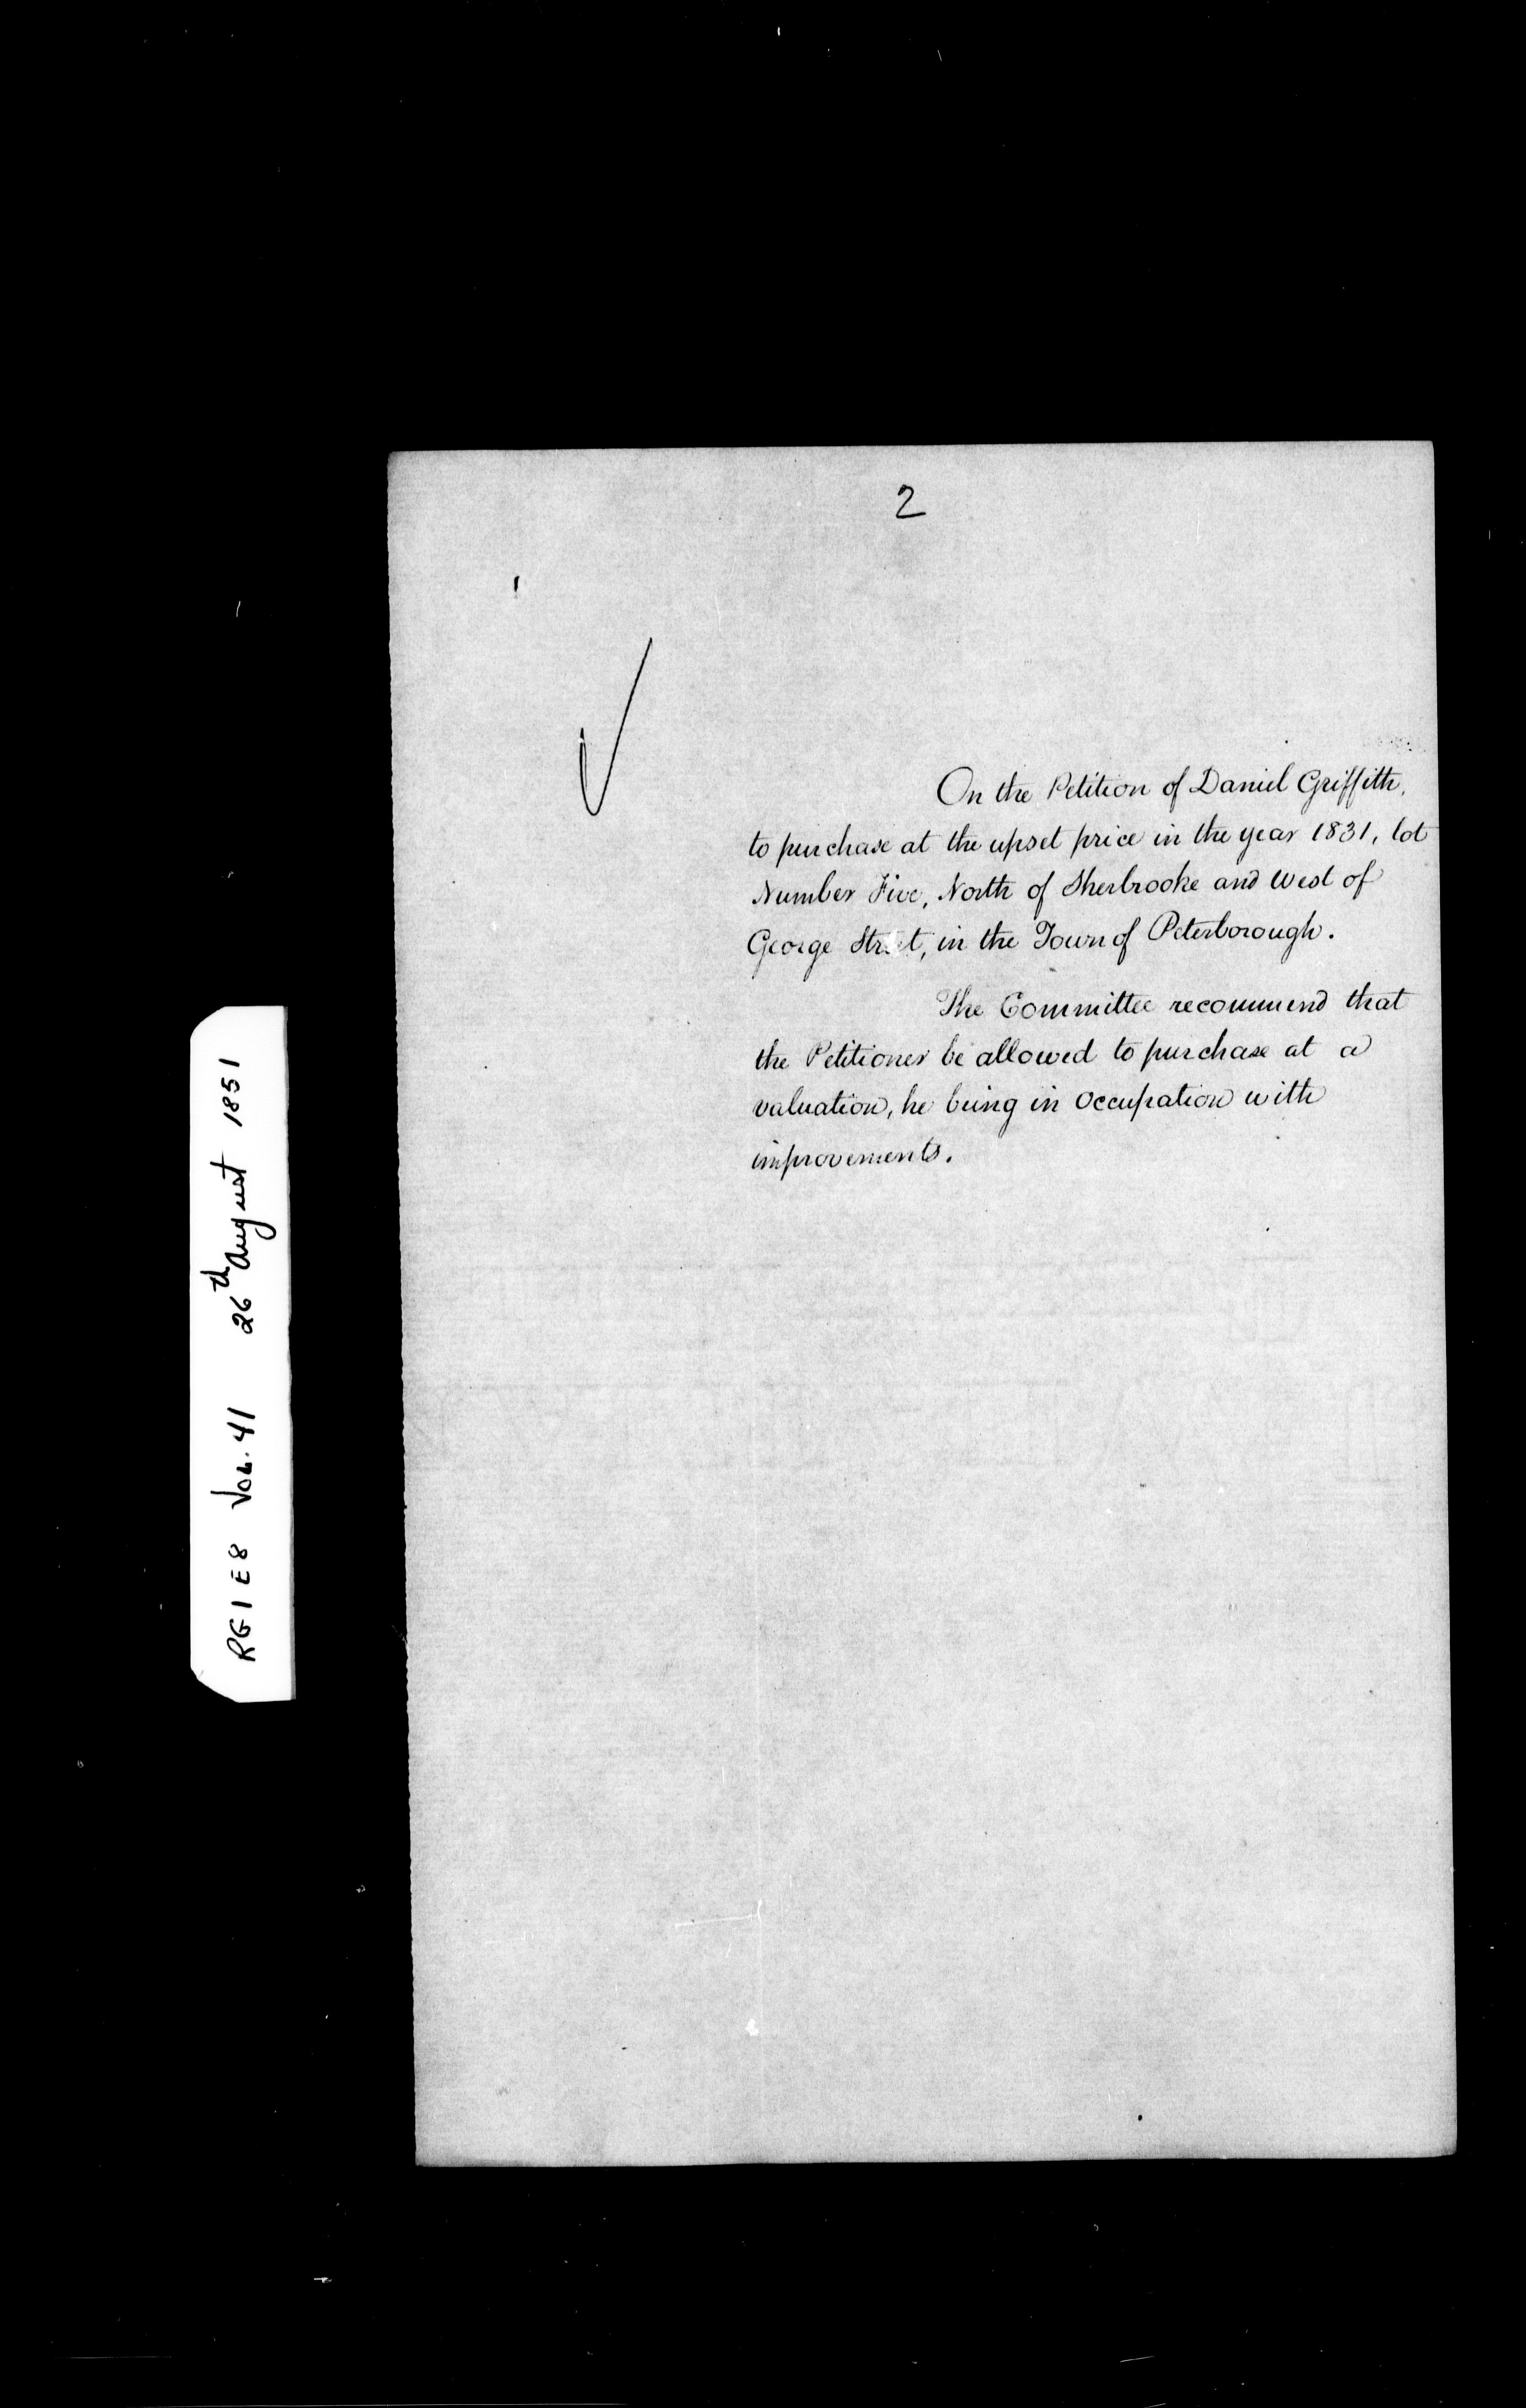 2
On the Petition of Daniel Griffith,
to purchase at the upset price in the year 1831, lot
Number Five, North of Sherbrooke and West of
George Street, in the Town of Peterborough.
The Committee recommend that
the Petitioner be allowed to purchase at a
valuation, he being in Occupation with
improvements.
RG1 E8 Vol. 41 26th August 1851